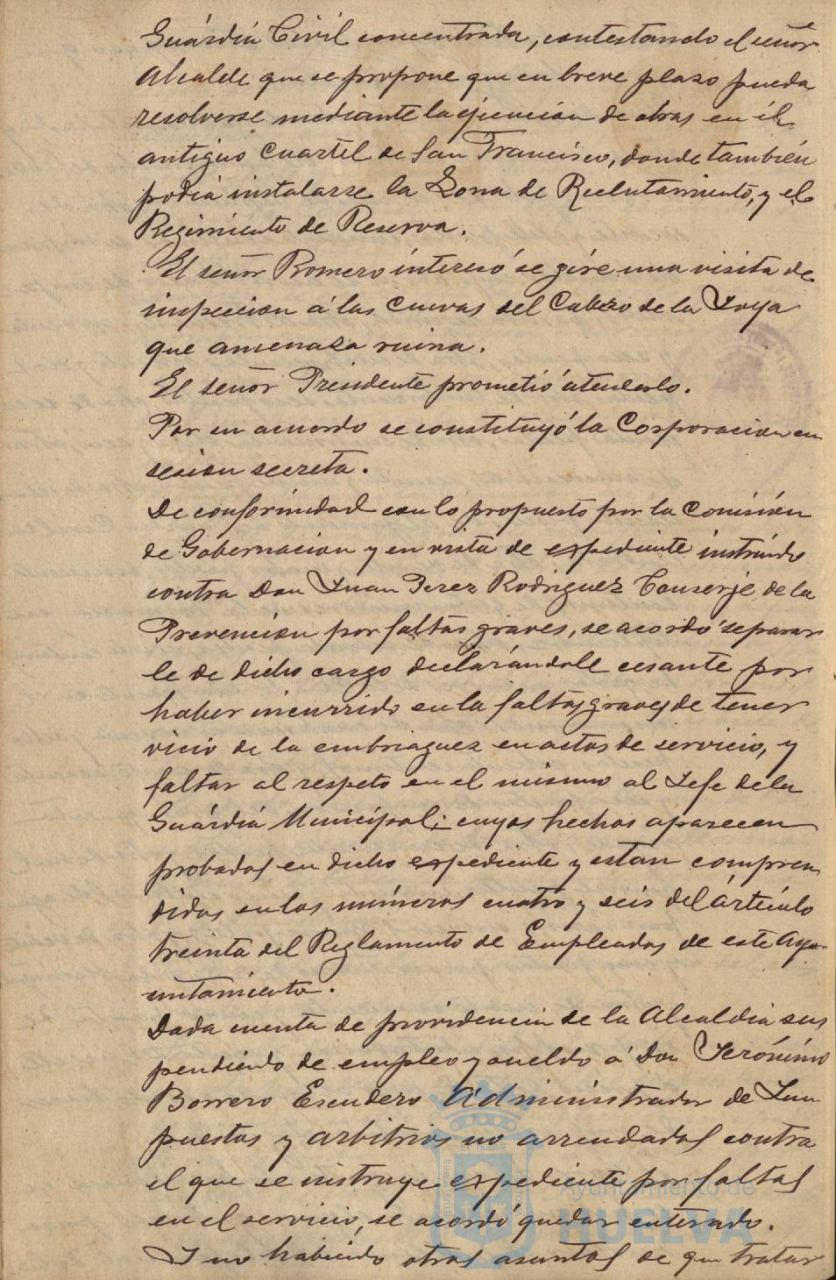 Guárdia Civil concentrada, contestando el señor
Alcalde que se propone que en breve plazo pueda
resolverse mediante la ejecución de obras en él
antiguo Cuartel de San Francisco, donde también
podia instalarse la Zona de Reclutamiento, y el
Regimiento de Reserva.
El señor Romero interesó se gire una visita de
inspeccion á las Cuevas del Cabezo de la Joya
que amenaza ruina.
El señor Presidente prometió atenderlo.
Por su acuerdo se constituyó la Corporacion en
sesion secreta.
De conformidad con lo propuesto por la Comisión
de Gobernacion y en vista de expediente instruido
contra Don Juan Perez Rodriguez Conserje de la
Prevencion por faltas graves, se acordó separar
le de dicho cargo declarándole cesante por
haber incurrido en la faltas graves de tener
vicio de la embriaguez en actos de servicio, y
faltar al respeto en el mismo al Jefe de la
Guárdia Municipal; cuyos hechos aparecen
probados en dicho expediente y estan compren
didos en los números cuatro y seis del Artículo
treinta del Reglamento de Empleados de este Ayu-
untamiento.
Dada cuenta de providencia de la Alcaldia sus
pendiendo de empleo y sueldo á Don Jerónimo
Borrero Escudero Administrador de Im
puestos y arbitrios no arrendados contra
el que se instruye expediente por faltas
en el servicio, se acordó quedar enterado.
Y no habiendo otros asuntos de que tratar
Ayuntamiento de
HUELVA